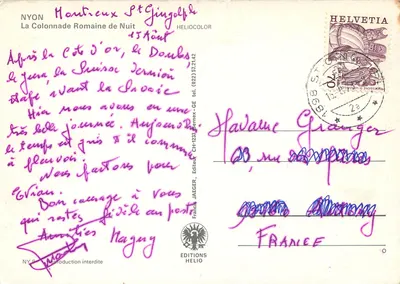 NYON
La Colonnade Romaine de Nuit
HELIOCOLOR
Montreux St Gingolph
15 Août
Après la Côte d'or, le Doubs,
le Jura, la Suisse dernière
étape avant la Savoie
Hier nous avons eu une
très belle journée. Aujourd'hui
le temps est gris et il commence
à pleuvoir.
Nous partons pour
Evian.
Bon courage à vous
qui restez fidèle au poste
Amitiés Maguy
HELVETIA
1898 ST-GINGOLPH
Madame Granger
rue
FRANCE
EDITIONS
HELIO
reproduction interdite